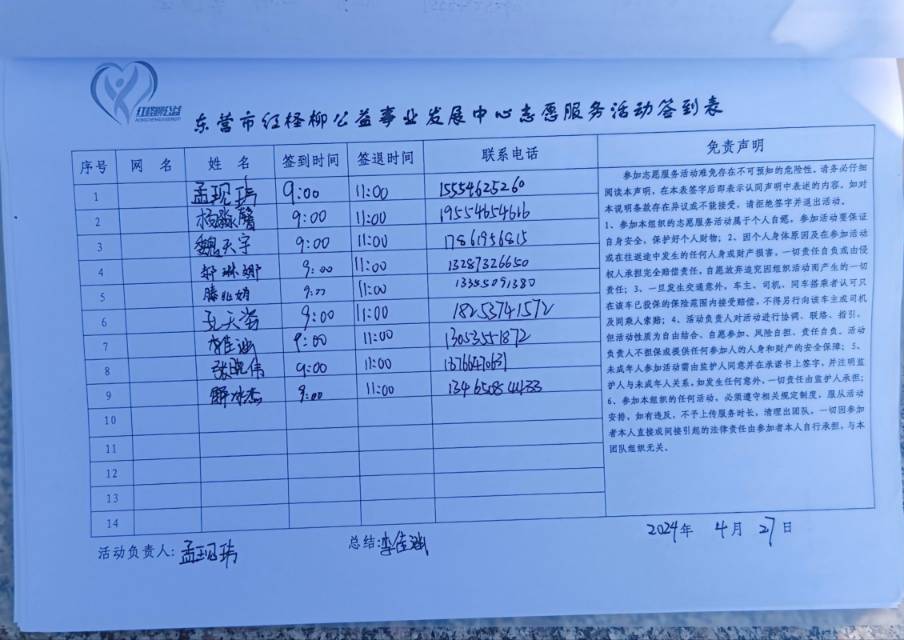 红柽柳公益
东营市红柽柳公益事业发展中心志愿服务活动签到表
序号 网 名 姓 名 签到时间 签退时间 联系电话 免责声明
1 孟现玮 9:00 11:00 15554625260
2 杨淼馨 9:00 11:00 19554654616
3 魏天宇 9:00 11:00 17861956815
4 琳娜 9:00 11:00 13287326650
5 滕兆娟 9:00 11:00 13355091380
6 孔天 9:00 11:00 18253741572
7 李佳 9:00 11:00 13053551872
8 张晓伟 9:00 11:00 13766470631
9 解冰杰 9:00 11:00 13465084433
10
11
12
13
14
参加志愿服务活动难免存在不可预知的危险性,请务必仔细
阅读本声明,在本表签字后即表示认同声明中表述的内容。如对
本说明条款存在异议或不能接受,请拒绝签字并退出活动。
1、参加本组织的志愿服务活动属于个人自愿,参加活动要保证
自身安全,保护好个人财物;2、因个人身体原因及在参加活动
或在往返途中发生的任何人身或财产损害,一切责任自负或由侵
权人承担完全赔偿责任,自愿放弃追究因组织活动而产生的一切
责任;3、一旦发生交通意外,车主、司机、同车搭乘者认可只
在该车已投保的保险范围内接受赔偿,不得另行向该车主或司机
及同乘人索赔;4、活动负责人对活动进行协调、联络、指引,
但活动性质为自由结合、自愿参加、风险自担、责任自负,活动
负责人不担保或提供任何参加人的人身和财产的安全保障;5、
未成年人参加活动需由监护人同意并在承诺书上签字,并注明监
护人与未成年人关系,如发生任何意外,一切责任由监护人承担;
6、参加本组织的任何活动,必须遵守相关规定制度,服从活动
安排,如有违反,不予上传服务时长,清理出团队。一切因参加
者本人直接或间接引起的法律责任由参加者本人自行承担,与本
团队组织无关。
2024年 4月 27日
活动负责人:孟现玮 总结:李佳